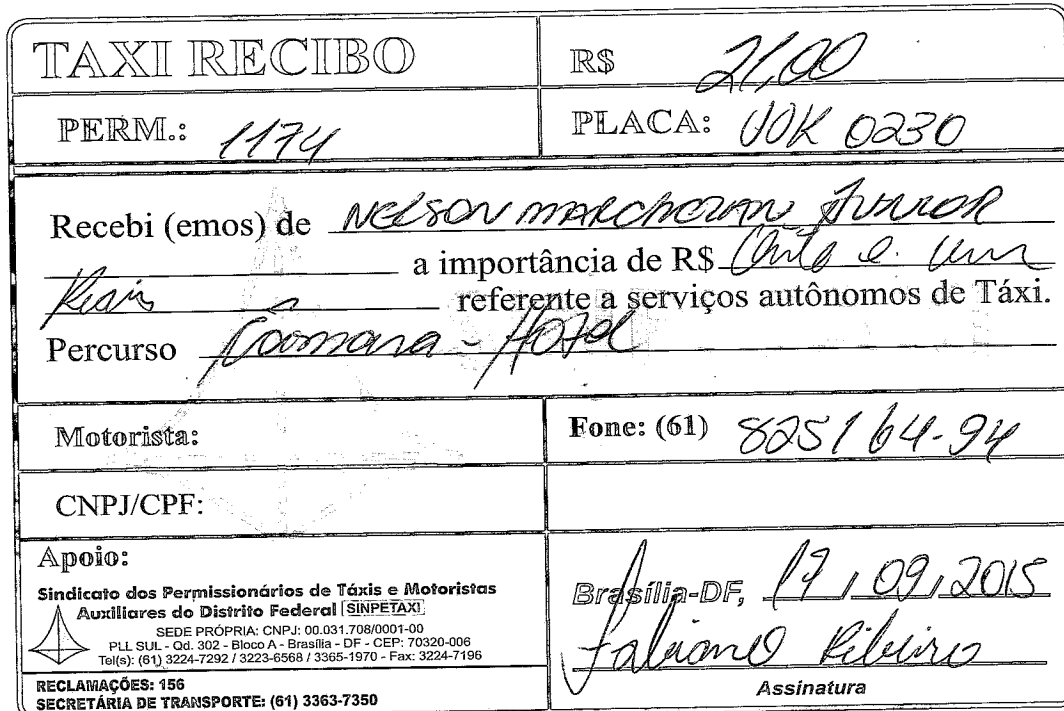 TAXI RECIBO
R$ 21,00
PERM.: 1174
PLACA: JJK 0230
Recebi (emos) de NELSON MARCHEZAN JUNIOR
a importância de R$ Vinte e um
Reais referente a serviços autônomos de Táxi.
Percurso Camara - Hotel
Motorista:
Fone: (61) 8251 64-94
CNPJ/CPF:
Apoio:
Sindicato dos Permissionários de Táxis e Motoristas
Auxiliares do Distrito Federal SINPETAXI
SEDE PRÓPRIA: CNPJ: 00.031.708/0001-00
PLL SUL - Qd. 302 - Bloco A - Brasília - DF - CEP: 70320-006
Tel(s): (61) 3224-7292 / 3223-6568 / 3365-1970 - Fax: 3224-7196
RECLAMAÇÕES: 156
SECRETÁRIA DE TRANSPORTE: (61) 3363-7350
Brasília-DF, 17 / 09 / 2015
Fabiano Ribeiro
Assinatura